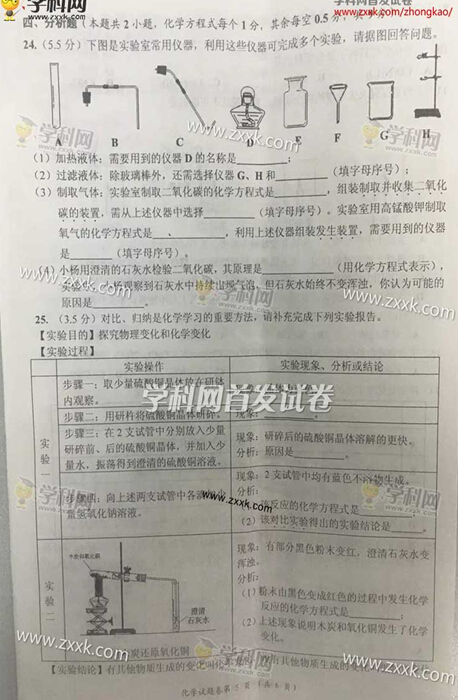 学科网首发试卷
www.zxxk.com/zhongkao/
四、分析题（本题共2小题，化学方程式每个1分，其余每空0.5分，共
24.（5.5分）下图是实验室常用仪器，利用这些仪器可完成多个实验，请据图回答问题。
A B C D E F G H
（1）加热液体：需要用到的仪器D的名称是______；
（2）过滤液体：除玻璃棒外，还需选择仪器G、H和______（填字母序号）；
（3）制取气体：实验室制取二氧化碳的化学方程式是______，组装制取并收集二氧化
碳的装置，需从上述仪器中选择______（填字母序号）。实验室用高锰酸钾制取
氧气的化学方程式是______，利用上述仪器组装发生装置，需要用到的仪器
是______（填字母序号）。
（4）小杨用澄清的石灰水检验二氧化碳，其原理是______（用化学方程式表示），
实验中，小杨观察到石灰水中持续出现气泡，但石灰水始终不变浑浊，你认为可能的
原因是______。
25.（3.5分）对比、归纳是化学学习的重要方法，请补充完成下列实验报告。
【实验目的】探究物理变化和化学变化
【实验过程】
实验操作 实验现象、分析或结论
实验一
步骤一：取少量硫酸铜晶体放在研钵
内观察。
步骤二：用研杵将硫酸铜晶体研碎。
现象：
步骤三：在2支试管中分别放入少量
研碎前、后的硫酸铜晶体，并加入少
量水，振荡得到澄清的硫酸铜溶液。
现象：研碎后的硫酸铜晶体溶解的更快。
分析：原因是______。
步骤四：向上述两支试管中各滴
量氢氧化钠溶液。
现象：2支试管中均有蓝色不溶物生成。
反应的化学方程式是______；
（2）该对比实验得出的实验结论是______。
实验二
澄清
石灰水
炭还原氧化铜
现象：有部分黑色粉末变红，澄清石灰水变
浑浊。
分析：
（1）粉末由黑色变成红色的过程中发生化学
反应的化学方程式是______；
（2）上述现象说明木炭和氧化铜发生了化学
变化。
【实验结论】有其他物质生成的变化叫化学变化，有其他物质生成的
化学试题卷第5页（共6页）
学科网
www.zxxk.com
学科网首发试卷
www.zxxk.com